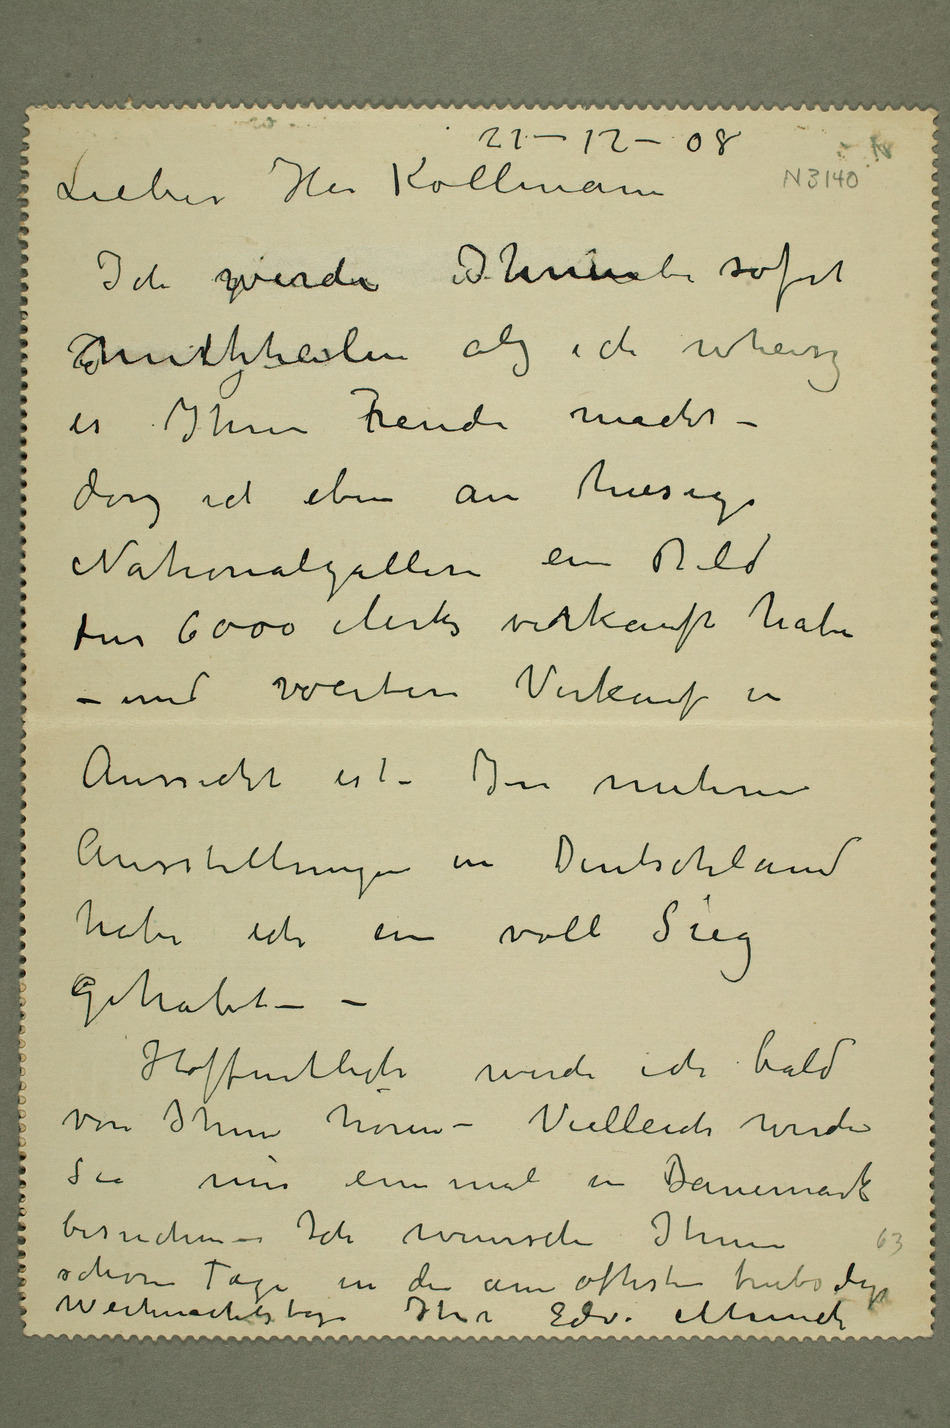 21–12–08
N3140
Lieber Herr Kollmann
Ich werde Ihnen sofort
mittheilen als ich weisz
es Ihnen Freude macht –
dasz ich eben an hiesige
Nationalgallerie ein Bild
fur 6000 Mark verkauft habe
– und weitere Verkauf in
Aussicht ist – In mehrere
Ausstellungen in Deutschland
habe ich ein voll Sieg
gehabt – –
Hoffentlich werde ich bald
von Ihnen hören – Vielleich werde
Sie mir einmal in Danemark
besuchen – Ich wünsche Ihnen
schöne Tage in die am oftesten
Weihnachtstage Ihr Edv. Munch
63